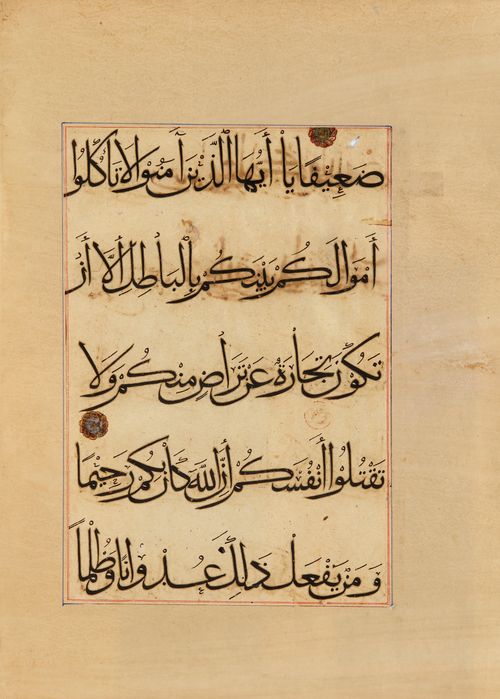 ضَعِيفًا يَا أَيُّهَا الَّذِينَ آمَنُوا لَا تَأْكُلُوا
أَمْوَالَكُمْ بَيْنَكُمْ بِالْبَاطِلِ إِلَّا أَنْ
تَكُونَ تِجَارَةً عَنْ تَرَاضٍ مِنْكُمْ وَلَا
تَقْتُلُوا أَنْفُسَكُمْ إِنَّ اللَّهَ كَانَ بِكُمْ رَحِيمًا
وَمَنْ يَفْعَلْ ذَلِكَ عُدْوَانًا وَظُلْمًا